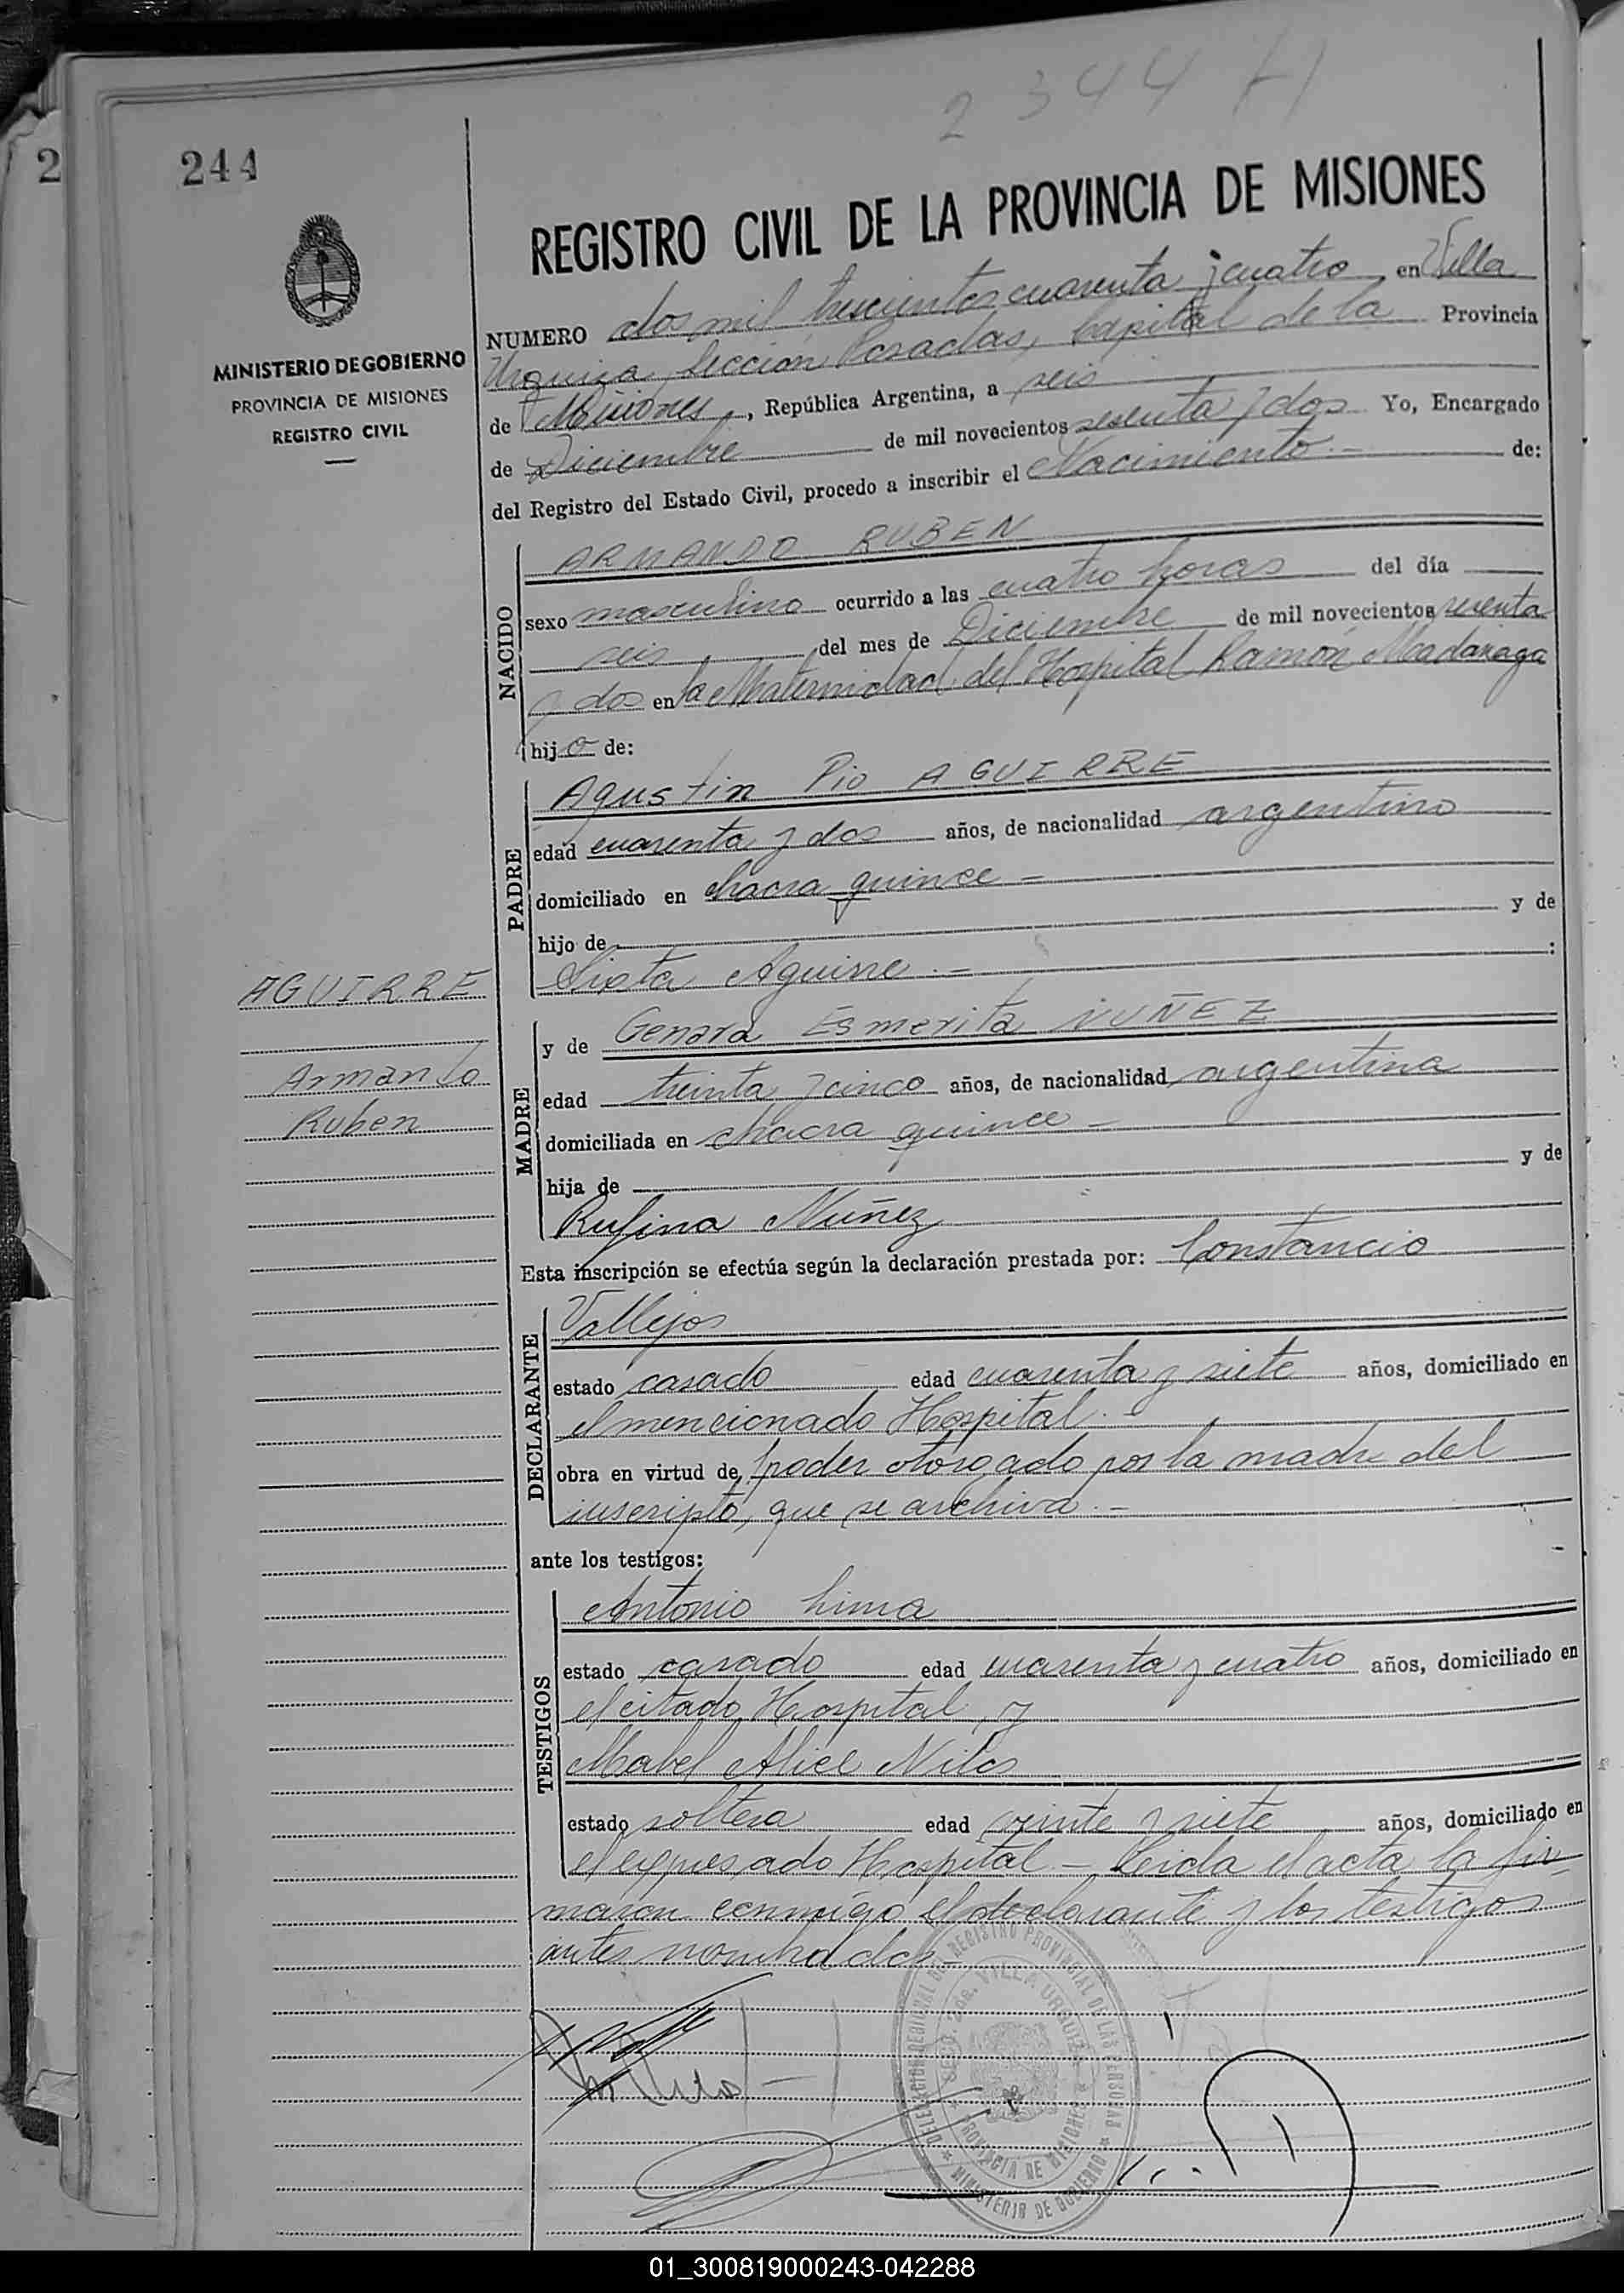 2344 H
2
244
REGISTRO CIVIL DE LA PROVINCIA DE MISIONES
MINISTERIO DE GOBIERNO
PROVINCIA DE MISIONES
REGISTRO CIVIL
NUMERO dos mil trescientos cuarenta y cuatro, en Villa
Urquiza, Sección Posadas, Capital de la Provincia
de Misiones, República Argentina, a seis
de Diciembre de mil novecientos sesenta y dos Yo, Encargado
del Registro del Estado Civil, procedo a inscribir el Nacimiento.- de:
NACIDO
ARMANDO RUBEN
sexo masculino ocurrido a las cuatro horas del día
seis del mes de Diciembre de mil novecientos sesenta
y dos en la Maternidad del Hospital Ramón Madariaga
hijo de:
PADRE
Agustin Pio AGUIRRE
edad cuarenta y dos años, de nacionalidad argentino
domiciliado en chacra quince -
hijo de y de
Sixta Aguirre.- :
AGUIRRE
Armando
Ruben
MADRE
y de Genara Esmerita NUÑEZ
edad treinta y cinco años, de nacionalidad argentina
domiciliada en chacra quince -
hija de y de
Rufina Nuñez
Esta inscripción se efectúa según la declaración prestada por: Constancio
DECLARANTE
Vallejos
estado casado edad cuarenta y siete años, domiciliado en
el mencionado Hospital.-
obra en virtud de poder otorgado por la madre del
inscripto, que se archiva.-
ante los testigos:
TESTIGOS
Antonio Lima
estado casado edad cuarenta y cuatro años, domiciliado en
el citado Hospital, y
Mabel Alice
estado soltera edad veinte y siete años, domiciliado en
el expresado Hospital - Leida el acta la fir
maron conmigo el declarante y los testigos
antes nombrados.-
DELEGACION REGIONAL DEL REGISTRO PROVINCIAL DE LAS PERSONAS
SECC. 2da. VILLA URQUIZA
PROVINCIA DE MISIONES
MINISTERIO DE GOBIERNO
01_300819000243-042288